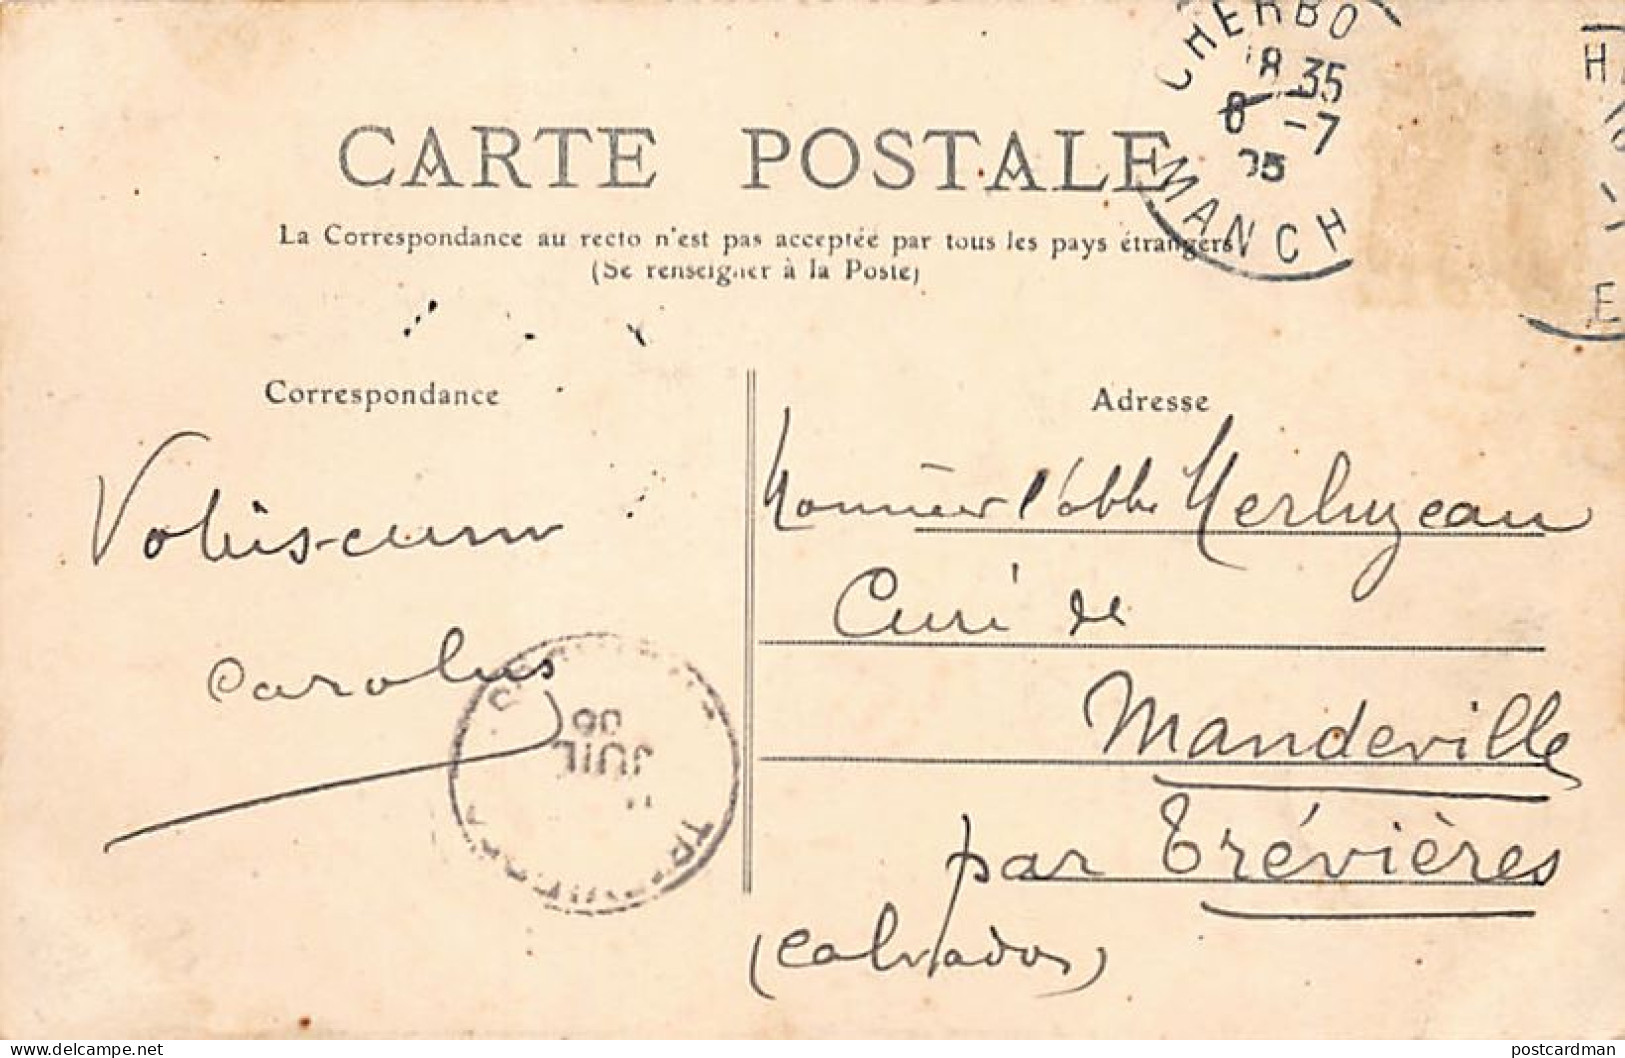 CHERBO
18 35
8 -7
05
MANCH
E
CARTE POSTALE
La Correspondance au recto n'est pas acceptée par tous les pays étrangers
(Se renseigner à la Poste)
Correspondance
Adresse
Vobis-cum
Carolus
Monsieur l'abbé
Curé de
Mandeville
par Trévières
(Calvados)
JUIL
delcampe.net
postcardman